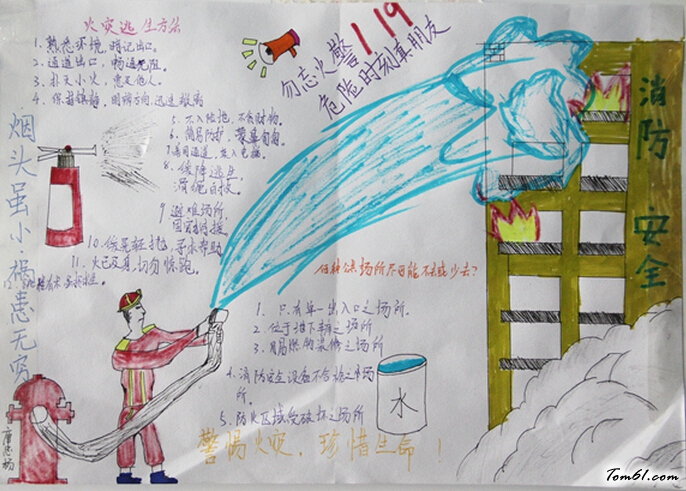 火灾逃生方法
1.熟悉环境,暗记出口。
2.通道出口,畅通无阻。
3.扑灭小火,惠及他人。
4.保持镇静,明辨方向,迅速撤离
5.不入险地,不贪财物。
6.简易防护,蒙鼻匍匐。
7.善用通道,莫入电梯。
8.缓降逃生,
滑绳自救。
9 避难场所,
固守待援
10.缓晃轻抛,寻求帮助
11.火已及身,切勿惊跑。
勿忘火警119
危险时刻真朋友
消防安全
烟头虽小,祸患无穷
何种公共场所不可能不去或少去?
1.只有单一出入口之场所。
2.位于地下
3.用易燃的装修之场所
4.消防安全设备不合格之场
所。
5.防火区域受破坏之场所
水
警惕火灾,珍惜生命!
Tom61.com